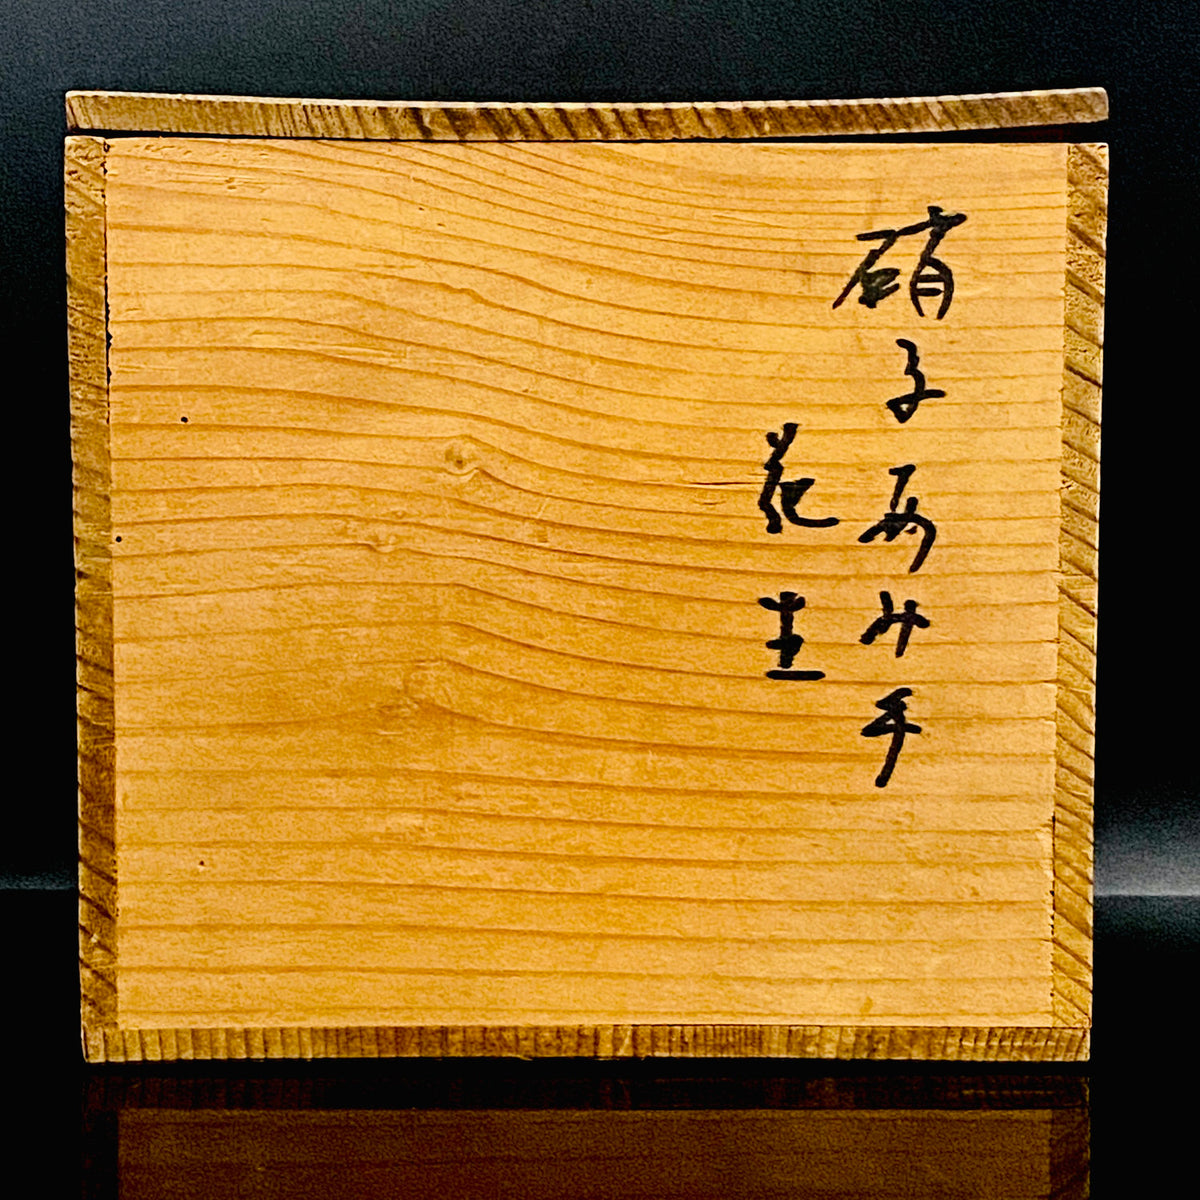 硝子あみ手
花生